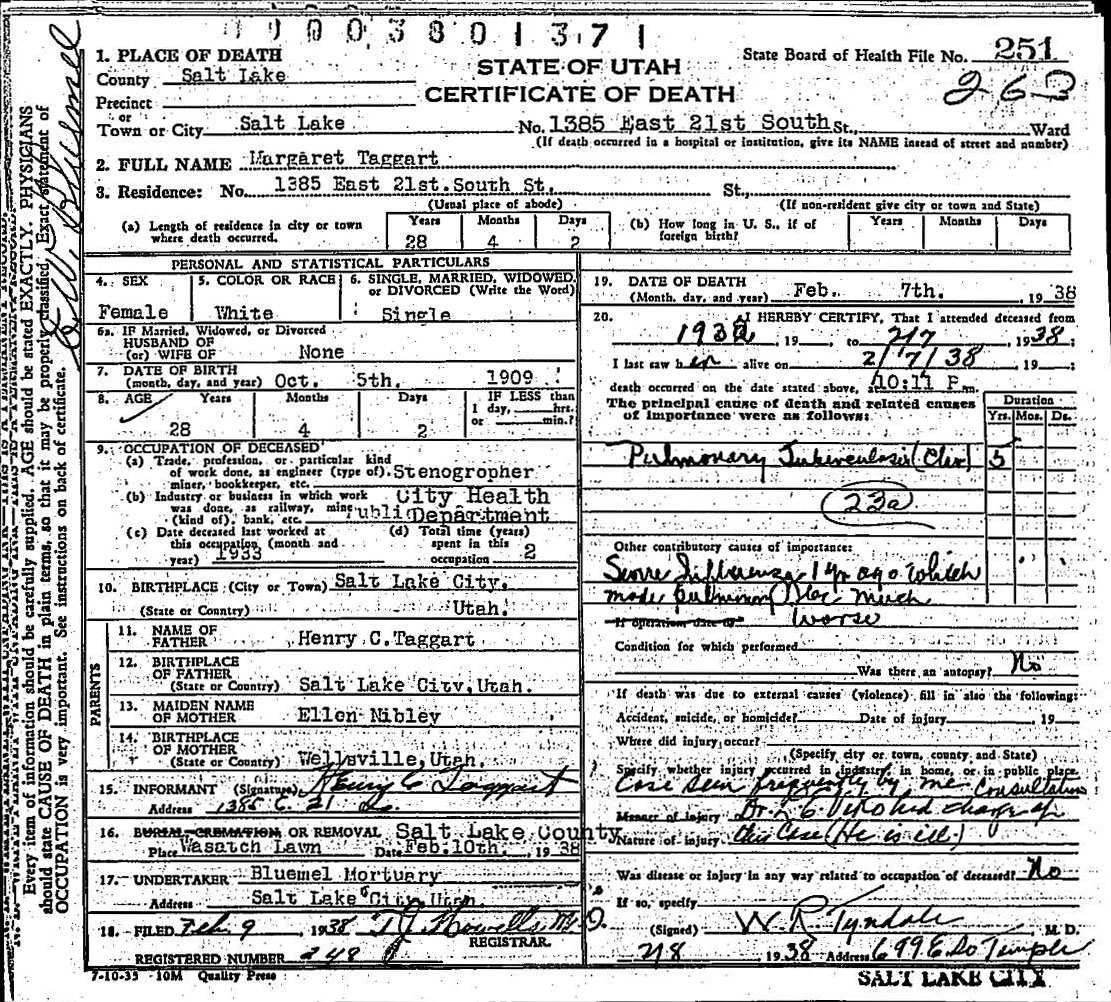 1 9 0 0 3 8 0 1 3 7 1
1. PLACE OF DEATH
County Salt Lake
Precinct
or
Town or City Salt Lake
STATE OF UTAH
CERTIFICATE OF DEATH
State Board of Health File No. 251
263
No. 1385 East 21st South St., Ward
(If death occurred in a hospital or institution, give its NAME instead of street and number)
2. FULL NAME Margaret Taggart
3. Residence: No. 1385 East 21st. South St. St.,
(Usual place of abode) (If non-resident give city or town and State)
(a) Length of residence in city or town where death occurred. Years 28 Months 4 Days 2
(b) How long in U. S., if of foreign birth? Years Months Days
PERSONAL AND STATISTICAL PARTICULARS
4. SEX Female
5. COLOR OR RACE White
6. SINGLE, MARRIED, WIDOWED, or DIVORCED (Write the Word) Single
6a. IF Married, Widowed, or Divorced
HUSBAND OF
(or) WIFE OF None
7. DATE OF BIRTH
(month, day, and year) Oct. 5th. 1909
8. AGE Years 28 Months 4 Days 2 IF LESS than 1 day, hrs. or min.?
9. OCCUPATION OF DECEASED
(a) Trade, profession, or particular kind
of work done, as engineer (type of). Stenogropher
miner, bookkeeper, etc.
(b) Industry or business in which work City Health
was done, as railway, mine
(kind of), bank, etc. Public Department
(c) Date deceased last worked at this occupation (month and year) 1933
(d) Total time (years) spent in this occupation 2
10. BIRTHPLACE (City or Town) Salt Lake City.
(State or Country) Utah.
PARENTS
11. NAME OF FATHER Henry C. Taggart
12. BIRTHPLACE OF FATHER
(State or Country) Salt Lake City, Utah.
13. MAIDEN NAME OF MOTHER Ellen Nibley
14. BIRTHPLACE OF MOTHER
(State or Country) Wellsville, Utah.
15. INFORMANT (Signature) Henry C Taggart
Address 1385 E. 21 So.
16. BURIAL CREMATION OR REMOVAL Salt Lake County
Place Wasatch Lawn Date Feb. 10th. 1938
17. UNDERTAKER Bluemel Mortuary
Address Salt Lake City, Utah
18. FILED Feb. 9 1938 T J Howells M D.
REGISTRAR.
REGISTERED NUMBER 248
7-10-35 - 10M Quality Press
19. DATE OF DEATH
(Month, day, and year) Feb. 7th. 1938
20. I HEREBY CERTIFY, That I attended deceased from
1932, 19 to 2/7, 1938;
I last saw her alive on 2/7/38, 19 ;
death occurred on the date stated above, at 10:11 P.m.
The principal cause of death and related causes
of importance were as follows:
Duration
Yrs. Mos. Ds.
Pulmonary Tuberculosis 5
23a
Other contributory causes of importance:
Severe Influenza 1 yr ago which
made much
worse
If operation date of
Condition for which performed
Was there an autopsy? No
If death was due to external causes (violence) fill in also the following:
Accident, suicide, or homicide? Date of injury 19
Where did injury occur?
(Specify city or town, county and State)
Specify whether injury occurred in industry, in home, or in public place.
Case seen frequently by me consultation
Manner of injury Dr. had charge of
Nature of injury this case (He is ill)
Was disease or injury in any way related to occupation of deceased? No
If so, specify
(Signed) W. R. Tyndale M. D.
2/8 1938 Address 699 E So Temple
SALT LAKE CITY
Every item of information should be carefully supplied. AGE should be stated EXACTLY. PHYSICIANS
should state CAUSE OF DEATH in plain terms, so that it may be properly classified. Exact statement of
OCCUPATION is very important. See instructions on back of certificate.